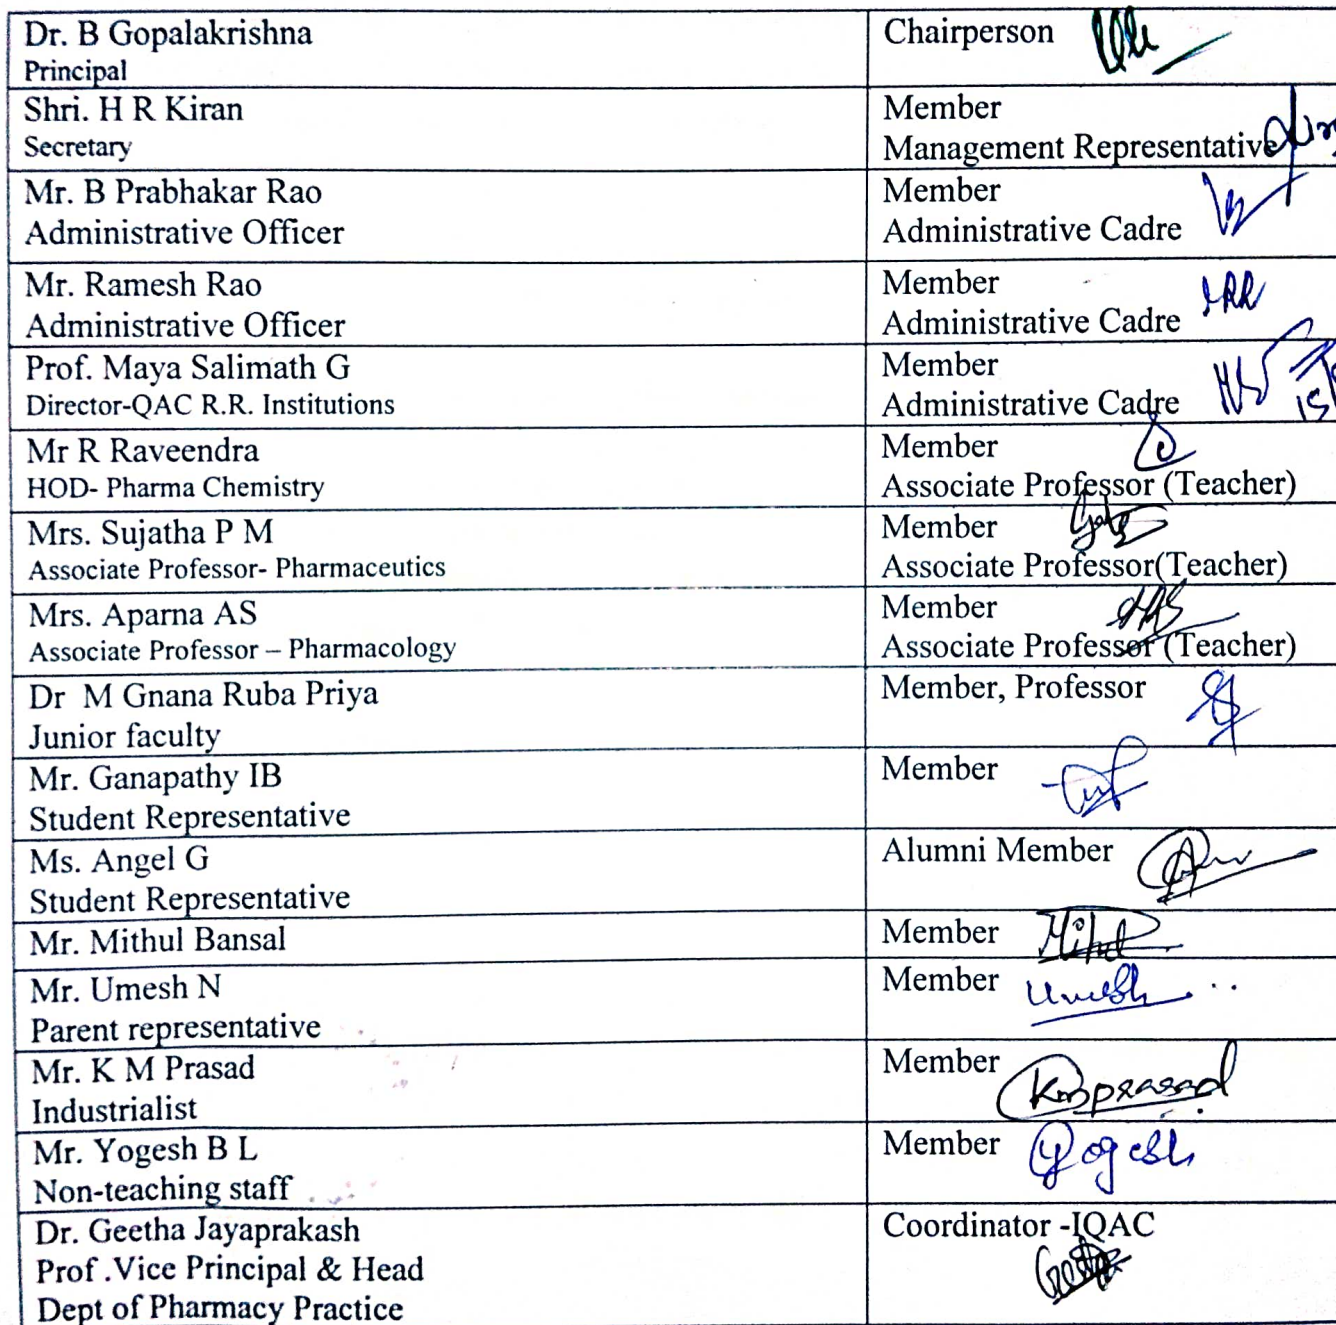 Dr. B Gopalakrishna
Principal
Chairperson
Shri. H R Kiran
Secretary
Member
Management Representative
Mr. B Prabhakar Rao
Administrative Officer
Member
Administrative Cadre
Mr. Ramesh Rao
Administrative Officer
Member
Administrative Cadre
Prof. Maya Salimath G
Director-QAC R.R. Institutions
Member
Administrative Cadre
Mr R Raveendra
HOD- Pharma Chemistry
Member
Associate Professor (Teacher)
Mrs. Sujatha P M
Associate Professor- Pharmaceutics
Member
Associate Professor(Teacher)
Mrs. Aparna AS
Associate Professor – Pharmacology
Member
Associate Professor (Teacher)
Dr M Gnana Ruba Priya
Junior faculty
Member, Professor
Mr. Ganapathy IB
Student Representative
Member
Ms. Angel G
Student Representative
Alumni Member
Mr. Mithul Bansal
Member
Mr. Umesh N
Parent representative
Member
Umesh
Mr. K M Prasad
Industrialist
Member
Kmprasad
Mr. Yogesh B L
Non-teaching staff
Member
Yogesh
Dr. Geetha Jayaprakash
Prof .Vice Principal & Head
Dept of Pharmacy Practice
Coordinator -IQAC